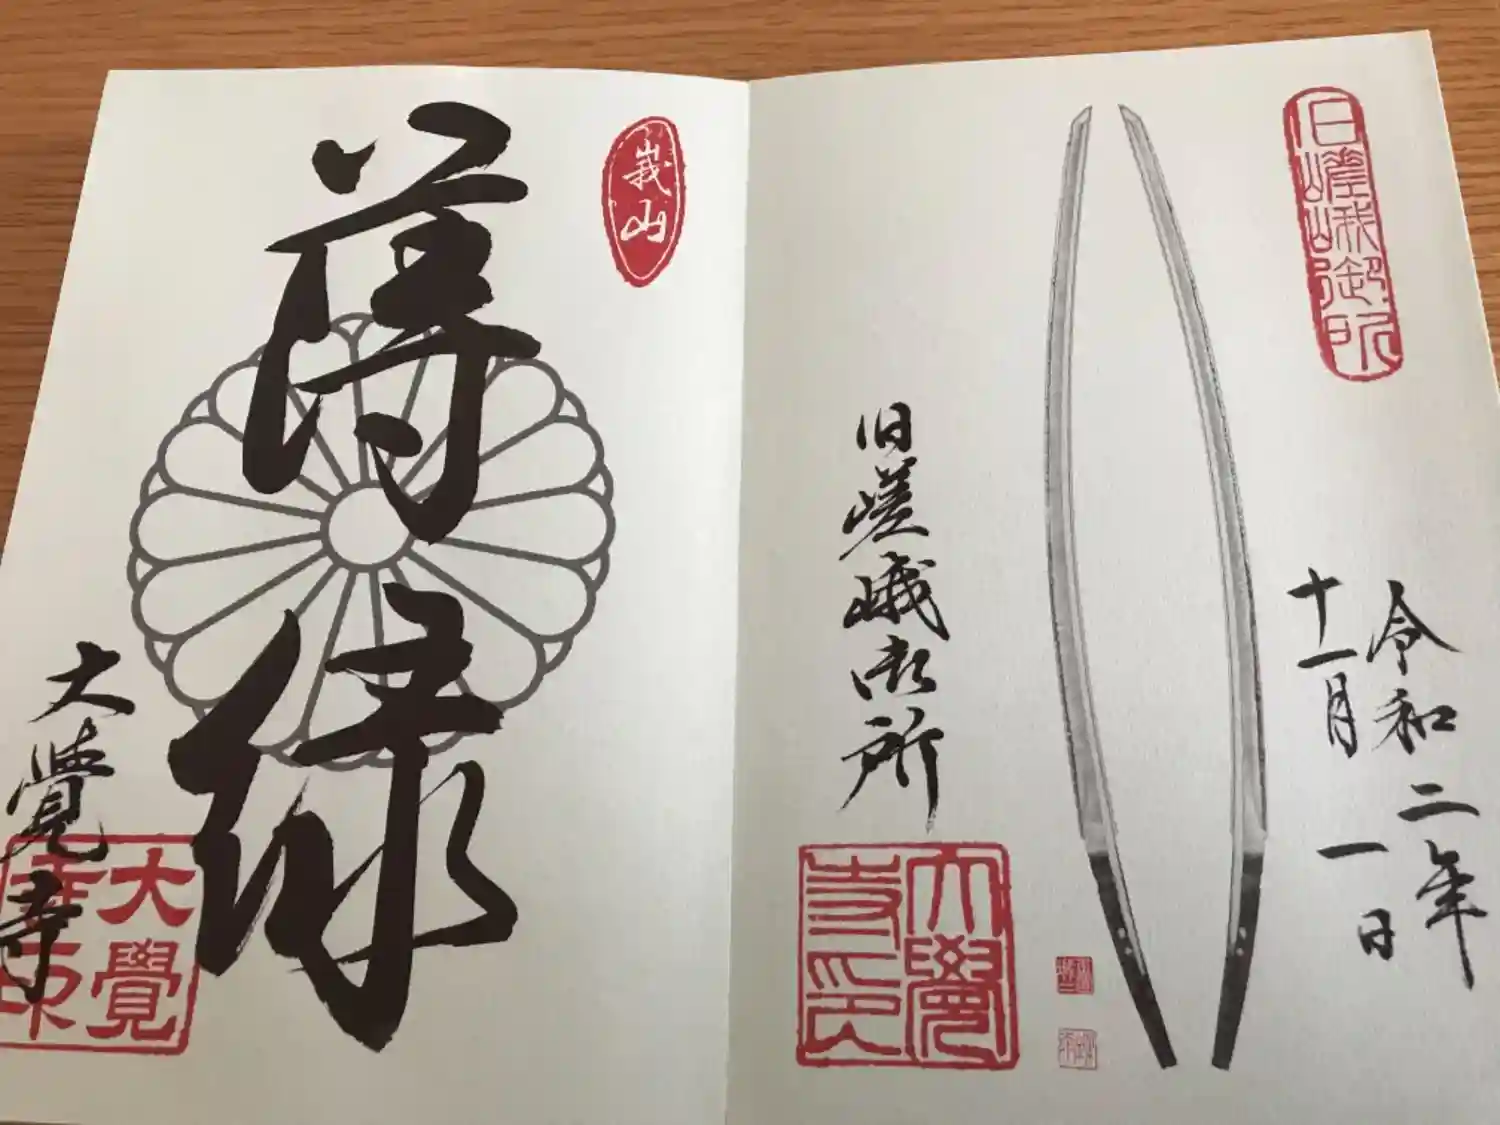 旧嵯峨御所
令和二年
十一月一日
旧嵯峨御所
大覺寺印
峩山
薄緑
大覺寺
大覺寺印